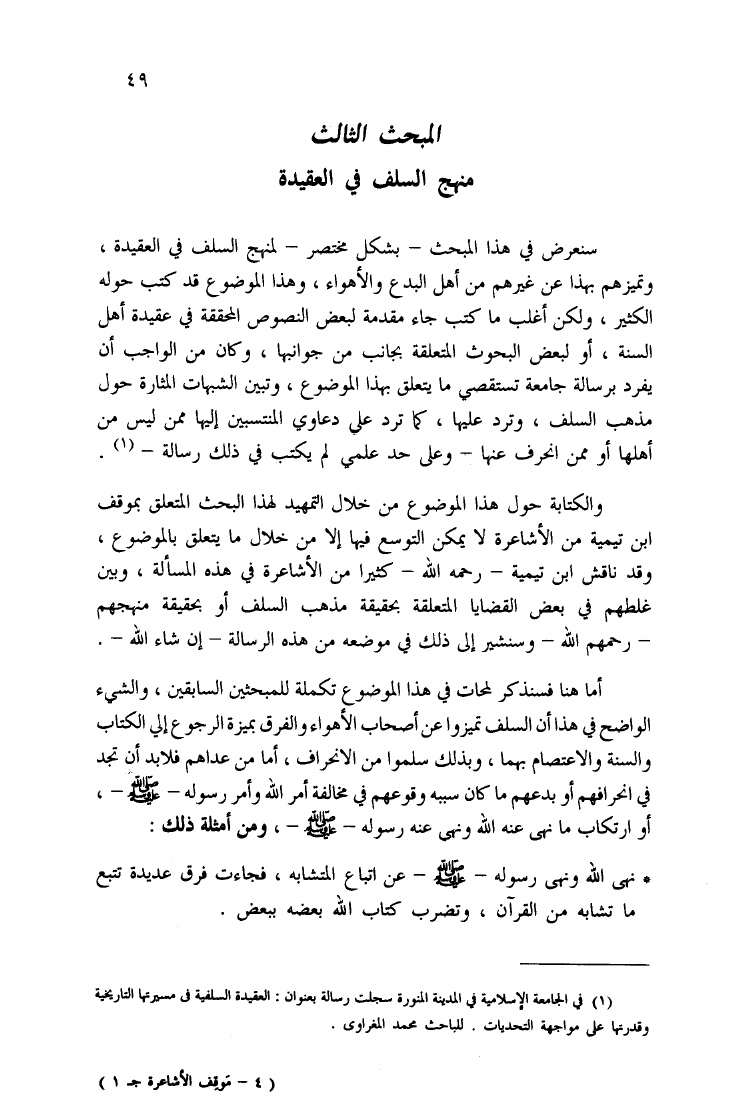 ٤٩
المبحث الثالث
منهج السلف في العقيدة
سنعرض في هذا المبحث – بشكل مختصر – لمنهج السلف في العقيدة ،
وتميزهم بهذا عن غيرهم من أهل البدع والأهواء ، وهذا الموضوع قد كتب حوله
الكثير ، ولكن أغلب ما كتب جاء مقدمة لبعض النصوص المحققة في عقيدة أهل
السنة ، أو لبعض البحوث المتعلقة بجانب من جوانبها ، وكان من الواجب أن
يفرد برسالة جامعة تستقصي ما يتعلق بهذا الموضوع ، وتبين الشبهات المثارة حول
مذهب السلف ، وترد عليها ، كما ترد على دعاوي المنتسبين إليها ممن ليس من
أهلها أو ممن انحرف عنها – وعلى حد علمي لم يكتب في ذلك رسالة – (١) .
والكتابة حول هذا الموضوع من خلال التمهيد لهذا البحث المتعلق بموقف
ابن تيمية من الأشاعرة لا يمكن التوسع فيها إلا من خلال ما يتعلق بالموضوع ،
وقد ناقش ابن تيمية – رحمه الله – كثيرا من الأشاعرة في هذه المسألة ، وبين
غلطهم في بعض القضايا المتعلقة بحقيقة مذهب السلف أو بحقيقة منهجهم
– رحمهم الله – وسنشير إلى ذلك في موضعه من هذه الرسالة – إن شاء الله – .
أما هنا فسنذكر لمحات في هذا الموضوع تكملة للمبحثين السابقين ، والشيء
الواضح في هذا أن السلف تميزوا عن أصحاب الأهواء والفرق بميزة الرجوع إلى الكتاب
والسنة والاعتصام بهما ، وبذلك سلموا من الانحراف ، أما من عداهم فلابد أن تجد
في انحرافهم أو بدعهم ما كان سببه وقوعهم في مخالفة أمر الله وأمر رسوله – ﷺ – ،
أو ارتكاب ما نهى عنه الله ونهى عنه رسوله – ﷺ – ، ومن أمثلة ذلك :
* نهى الله ونهى رسوله – ﷺ – عن اتباع المتشابه ، فجاءت فرق عديدة تتبع
ما تشابه من القرآن ، وتضرب كتاب الله بعضه ببعض .
(١) في الجامعة الإسلامية في المدينة المنورة سجلت رسالة بعنوان : العقيدة السلفية فى مسيرتها التاريخية
وقدرتها على مواجهة التحديات . للباحث محمد المغراوى .
( ٤ – موقف الأشاعرة جـ ١ )